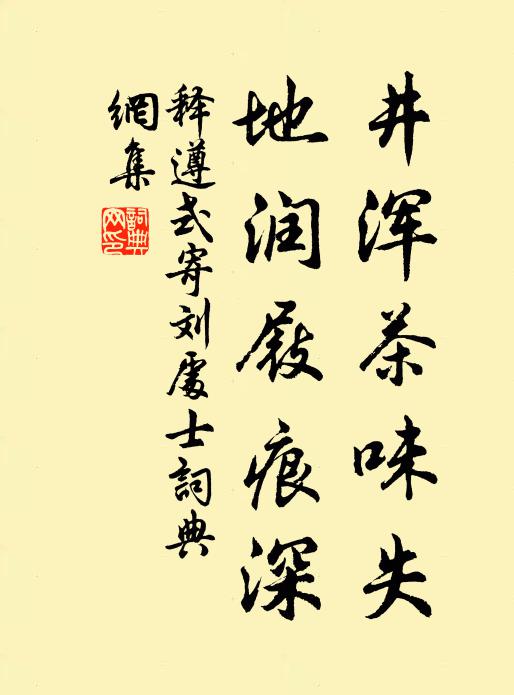 井浑茶味失
地润屐痕深
释遵式寄刘處士詞典
網集
詞典
网印